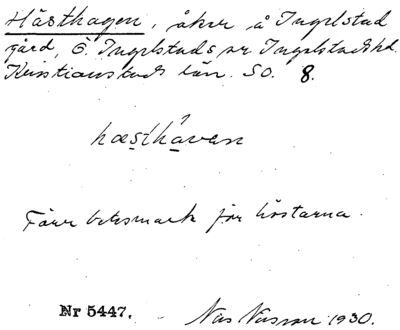 Hästhagen, åker å Ingelstad
gård, Ö. Ingelstads sn Ingelstads hd.
Kristianstads län. SO. 8.
hæsthaven
Förr betesmark för hästarna.
Nr 5447. Nils Nilsson 1930.